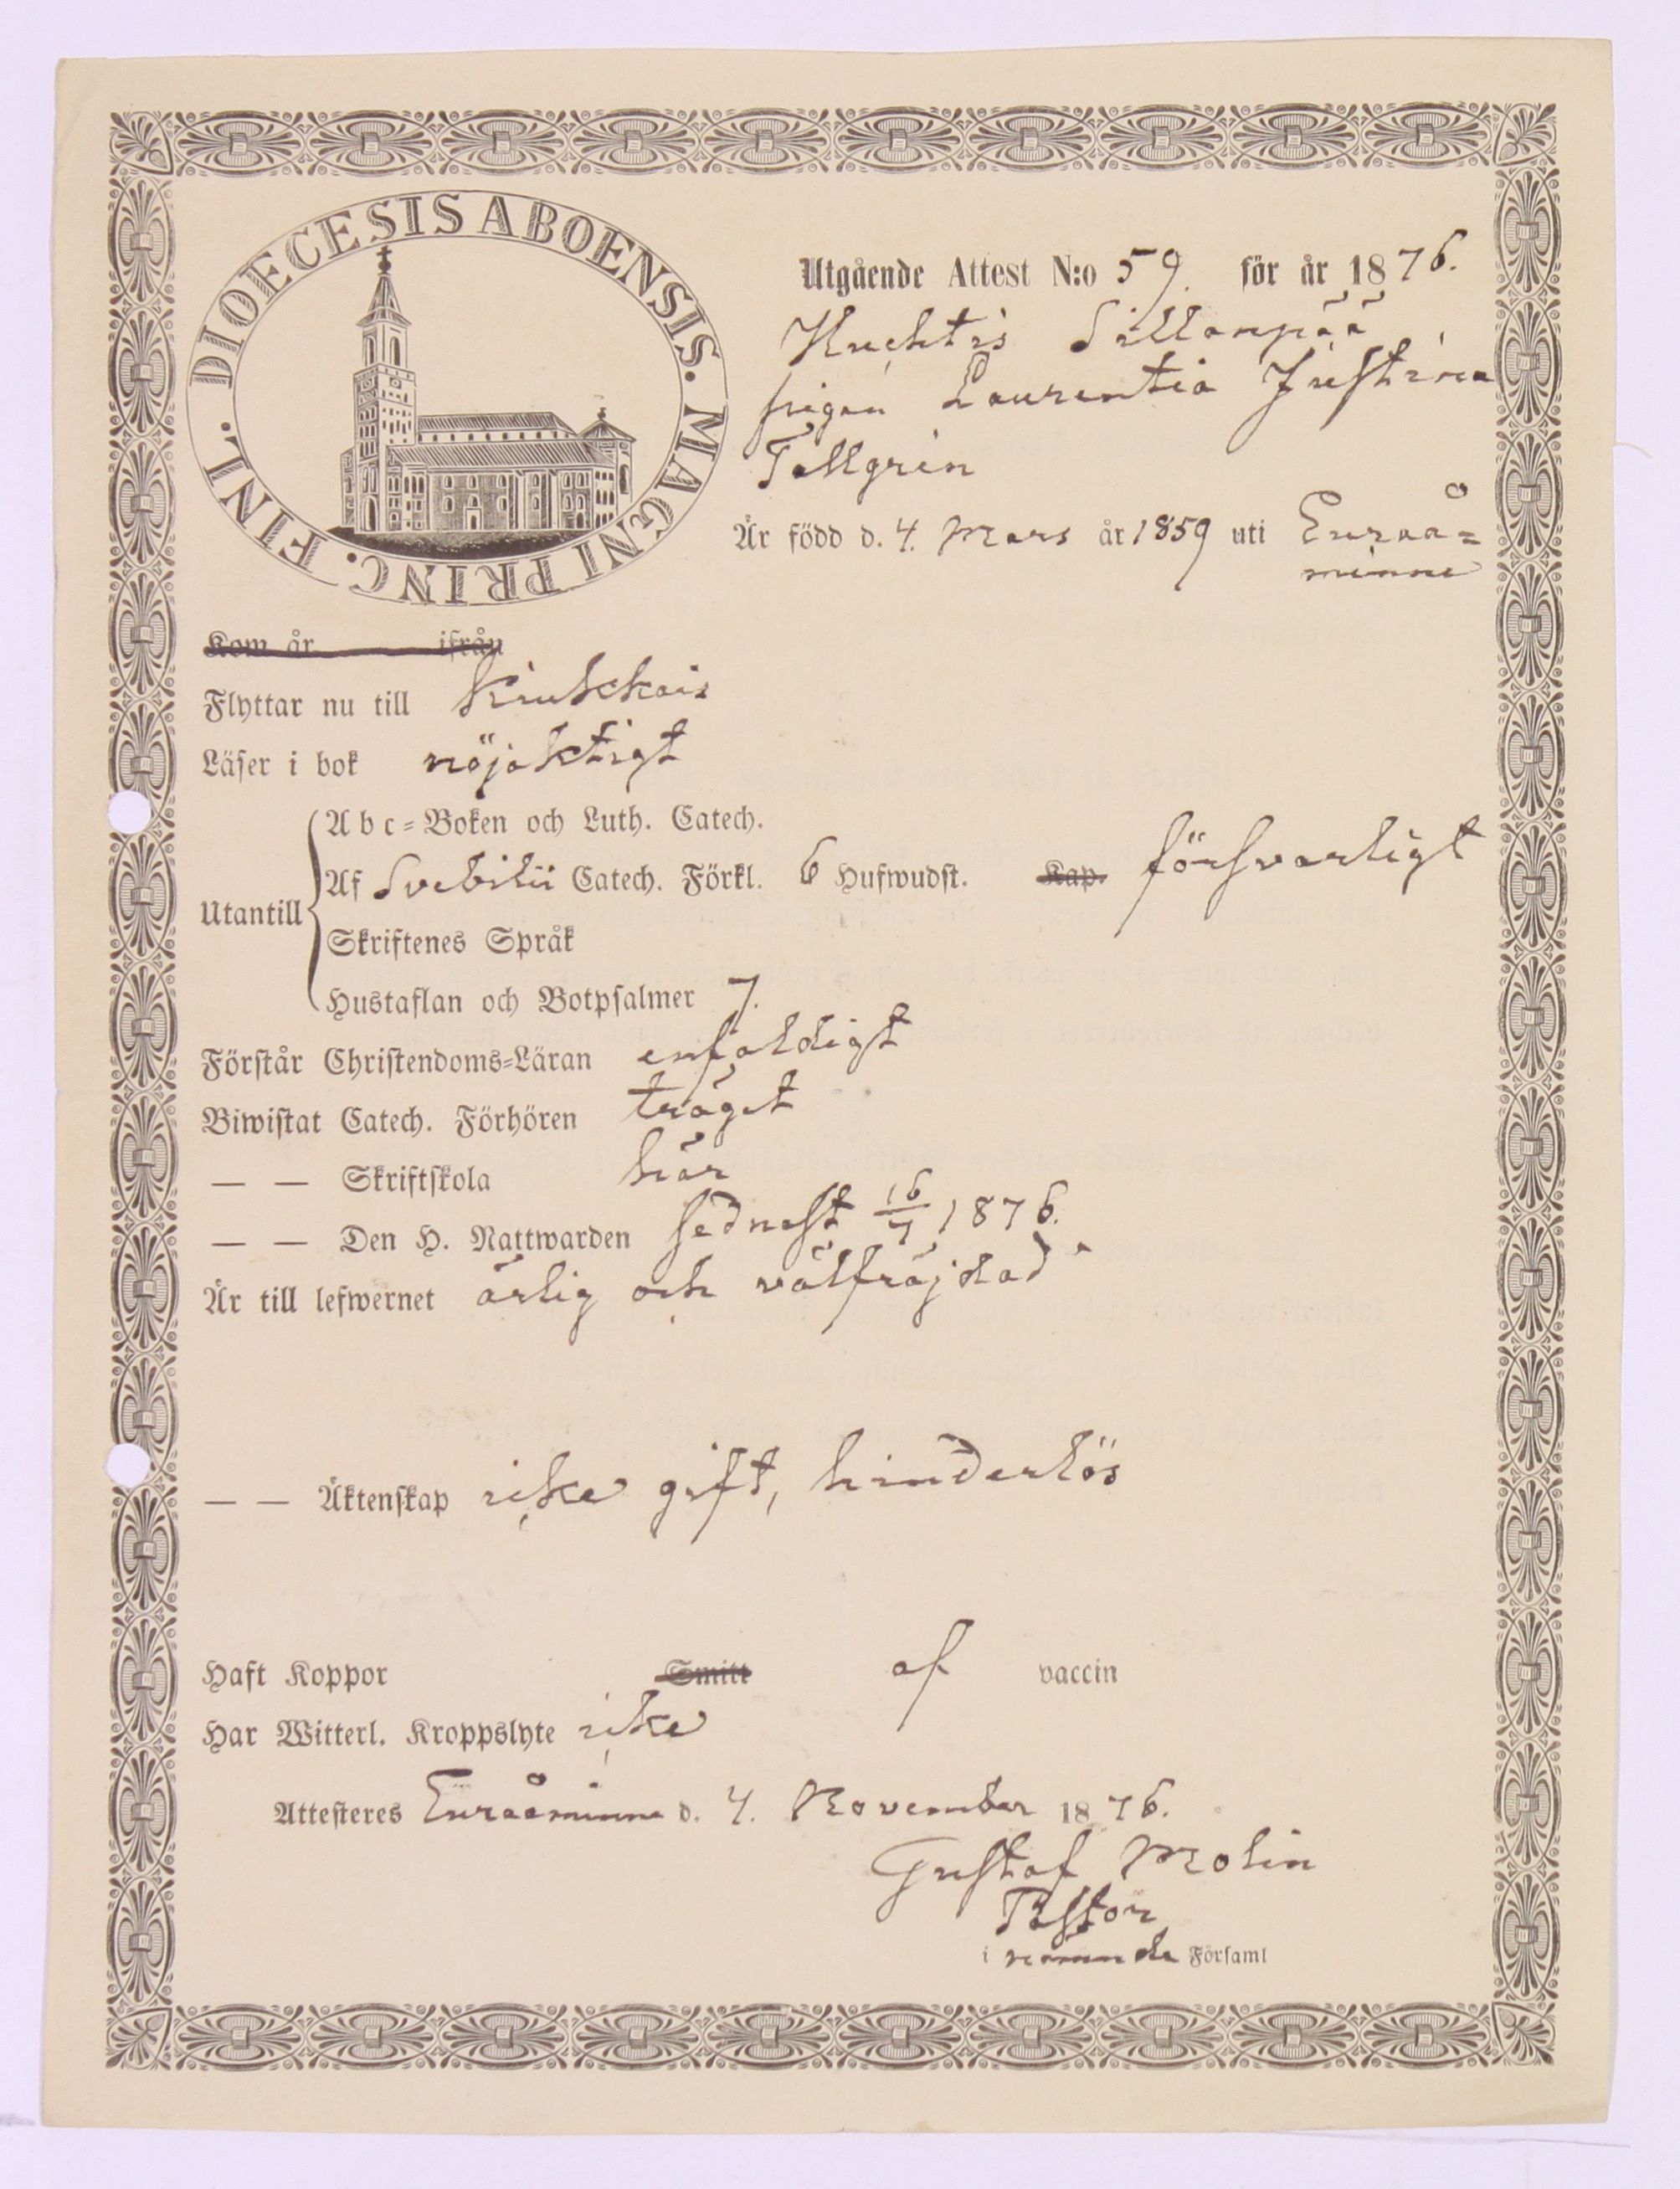 DIOECESIS ABOENSIS. MAGNI PRINC. FINL.
Utgående Attest N:o 59. för år 1876.
Huchtis Sillanpää
pigan Laurentia Justina
Tallgrén
Är född d. 4. Mars år 1859 uti Euraå=
minne
Kom år ifrån
Flyttar nu till Kiukkais
Läser i bok nöjaktigt
Abc=Boken och Luth. Catech.
Utantill
Af Svebilii Catech. Förkl. 6 Hufwudst. Kap. försvarligt
Skriftenes Språk
Hustaflan och Botpsalmer 7.
Förstår Christendoms=Läran enfaldigt
Biwistat Catech. Förhören träget
— — Skriftskola här
— — Den H. Nattwarden sednast 16/7 1876.
Är till lefwernet ärlig och välfräjdad
— — Äktenskap icke gift, hinderlös
Haft Koppor Smitt af vaccin
Har Witterl. Kroppslyte icke
Attesteres Euraåminne d. 4. November 1876.
Gustaf Molin
Pastor
i nämnde Församl